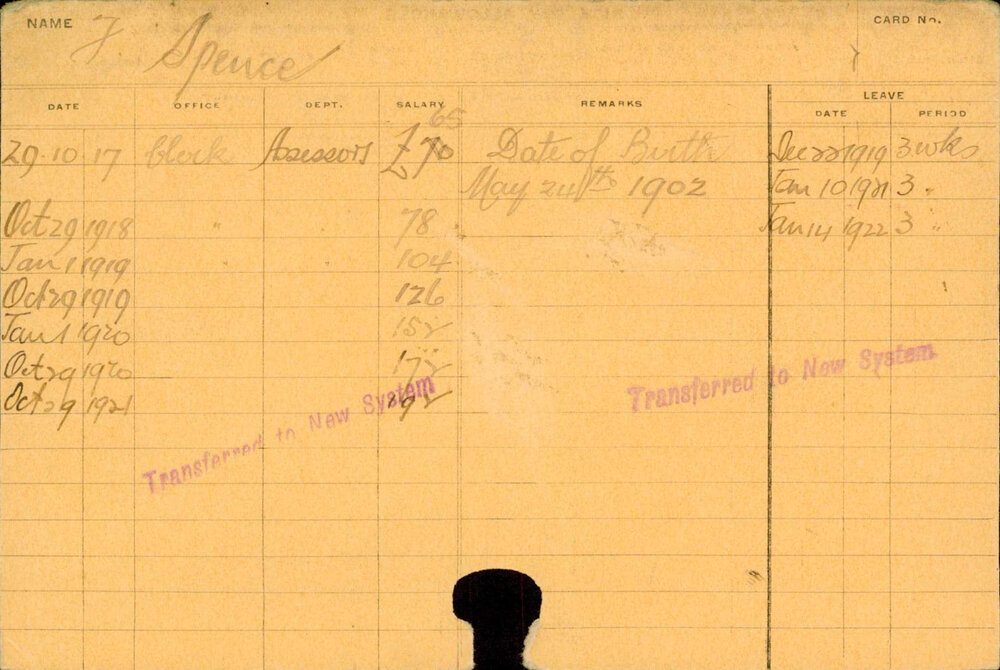 NAME F. Spence CARD No.
DATE OFFICE DEPT. SALARY REMARKS LEAVE
DATE PERIOD
65
29.10.17 Clerk Assessors £70 Date of Birth Dec 22 1919 3 wks
May 24th 1902 Jan 10 1921 3 "
Oct 29 1918 " 78 Jan 14 1922 3 "
Jan 1 1919 " " 104
Oct 29 1919 126
Jan 1 1920 152
Oct 29 1920 172
Oct 29 1921 192
Transferred to New System
Transferred to New System